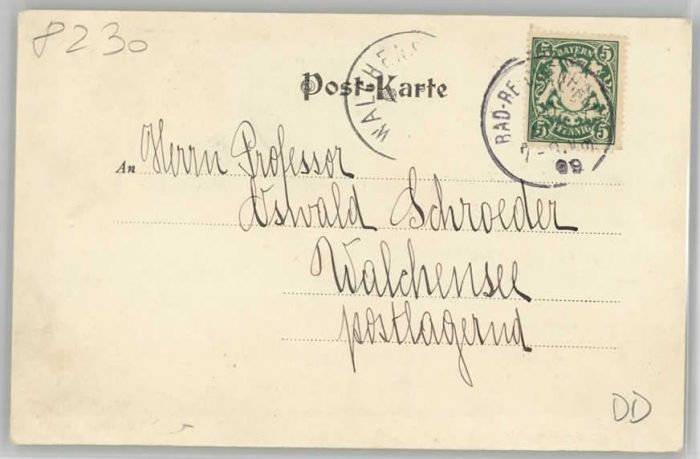 8230
Post-Karte
WALCHENS
5 BAYERN 5
5 PFENNIG 5
BAD-RE
99
An Herrn Professor
Oswald Schroeder
Walchensee
postlagernd
DD